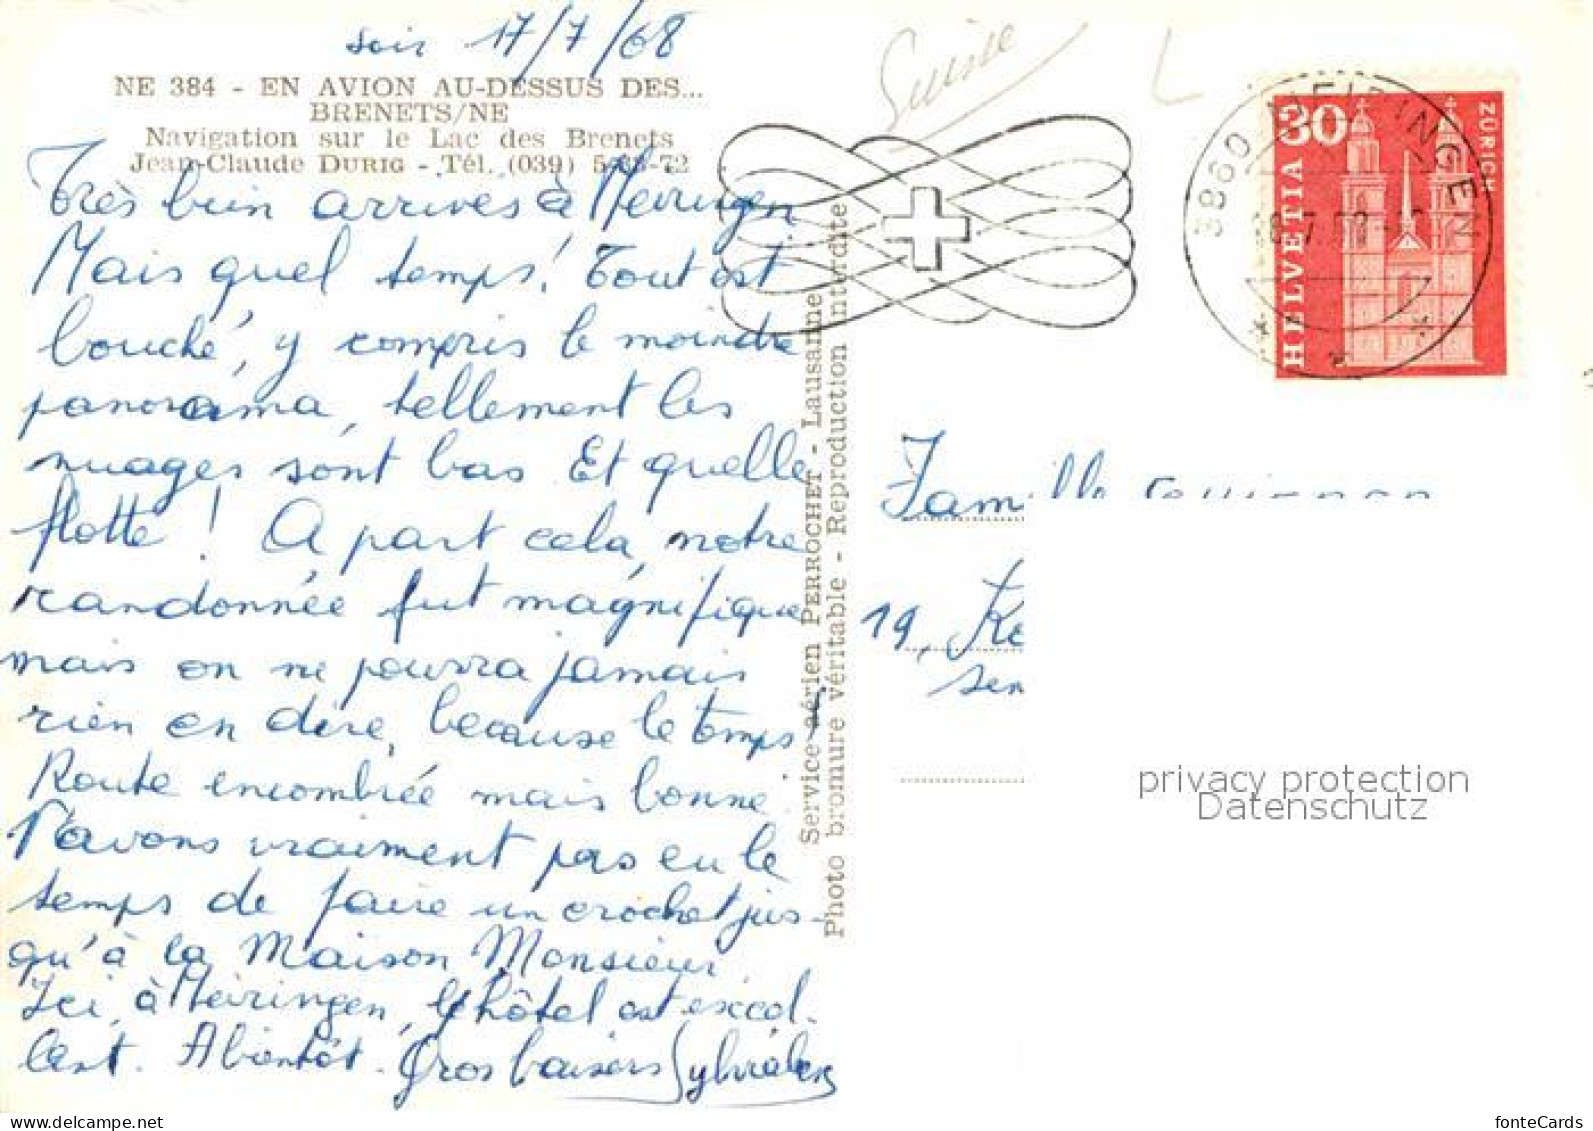 soir 17/7/68
NE 384 - EN AVION AU-DESSUS DES...
BRENETS/NE
Navigation sur le Lac des Brenets
Jean-Claude DURIG - Tél. (039) 5 33-72
Très bien arrivés à Meiringen
Mais quel temps! Tout est
bouché, y compris le moindre
panorama, tellement les
nuages sont bas Et quelle
flotte! A part cela, notre
randonnée fut magnifique
mais on ne pourra jamais
rien en dire, because le temps!
Route encombrée mais bonne
N'avons vraiment pas eu le
temps de faire un crochet jus-
qu'à la Maison Monsieur
Ici, à Meiringen, l'hôtel est excel-
lent. A bientôt. Gros baisers
Service aérien PERROCHET - Lausanne
Photo bromure véritable - Reproduction interdite
Suisse
8860 MEIRINGEN
30
HELVETIA
ZÜRICH
Famille
19,
privacy protection
Datenschutz
fonteCards